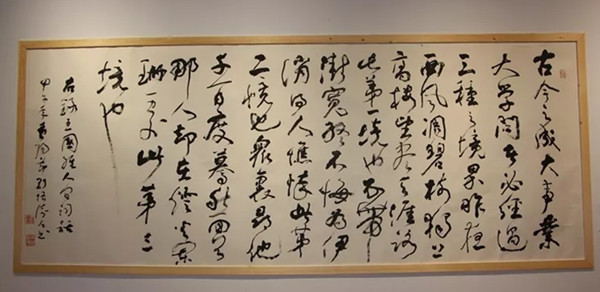 古今之成大事業
大學問者必經過
三種之境界昨夜
西風凋碧樹獨上
高樓望盡天涯路
此第一境也衣帶
漸寬終不悔為伊
消得人憔悴此第
二境也衆裏尋他
千百度驀然回首
那人却在燈火闌
珊處此第三
境也
右錄王國維人間詞話